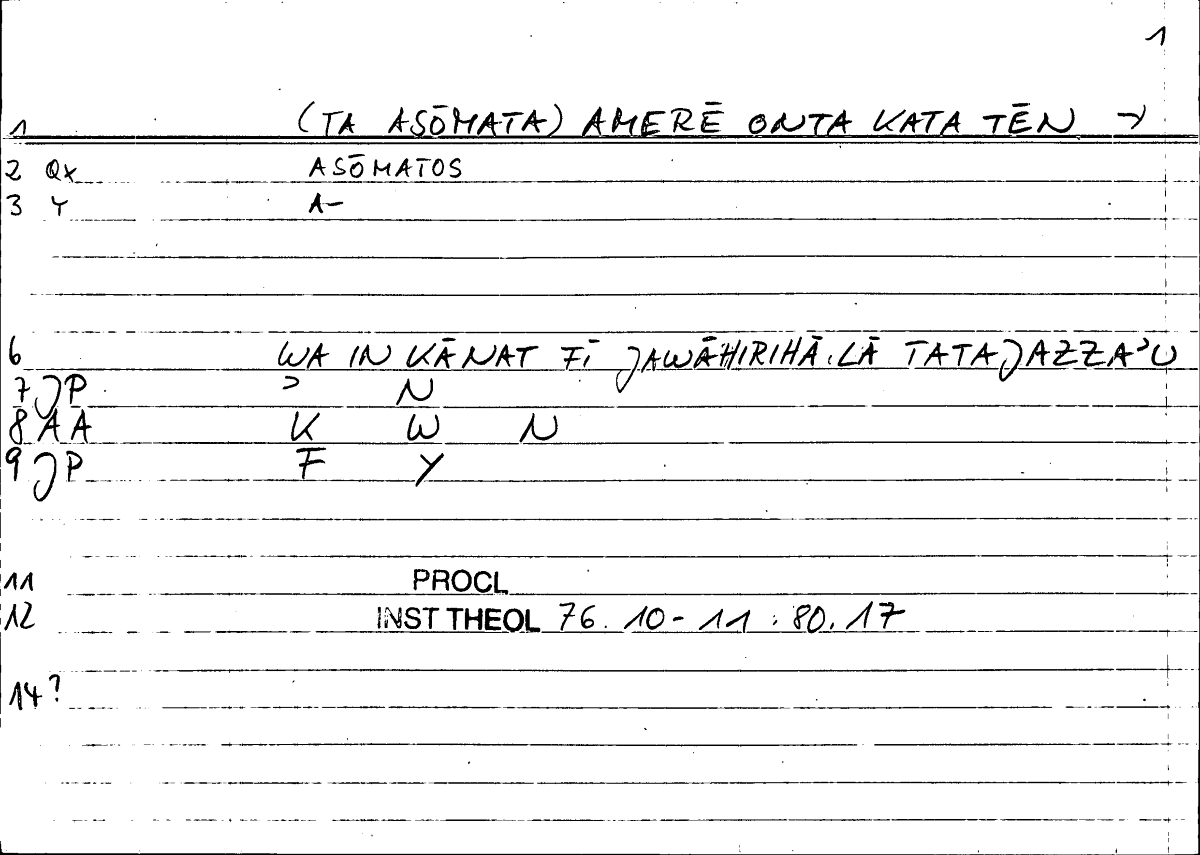 1
1 (TA ASŌMATA) AMERĒ ONTA KATA TĒN →
2 Qx ASŌMATOS
3 Y A-
6 WA IN KĀNAT FĪ JAWĀHIRIHĀ LĀ TATAJAZZAʾU
7 JP ʾ N
8 AA K W N
9 JP F Y
11 PROCL
12 INST THEOL 76. 10-11 : 80. 17
14?